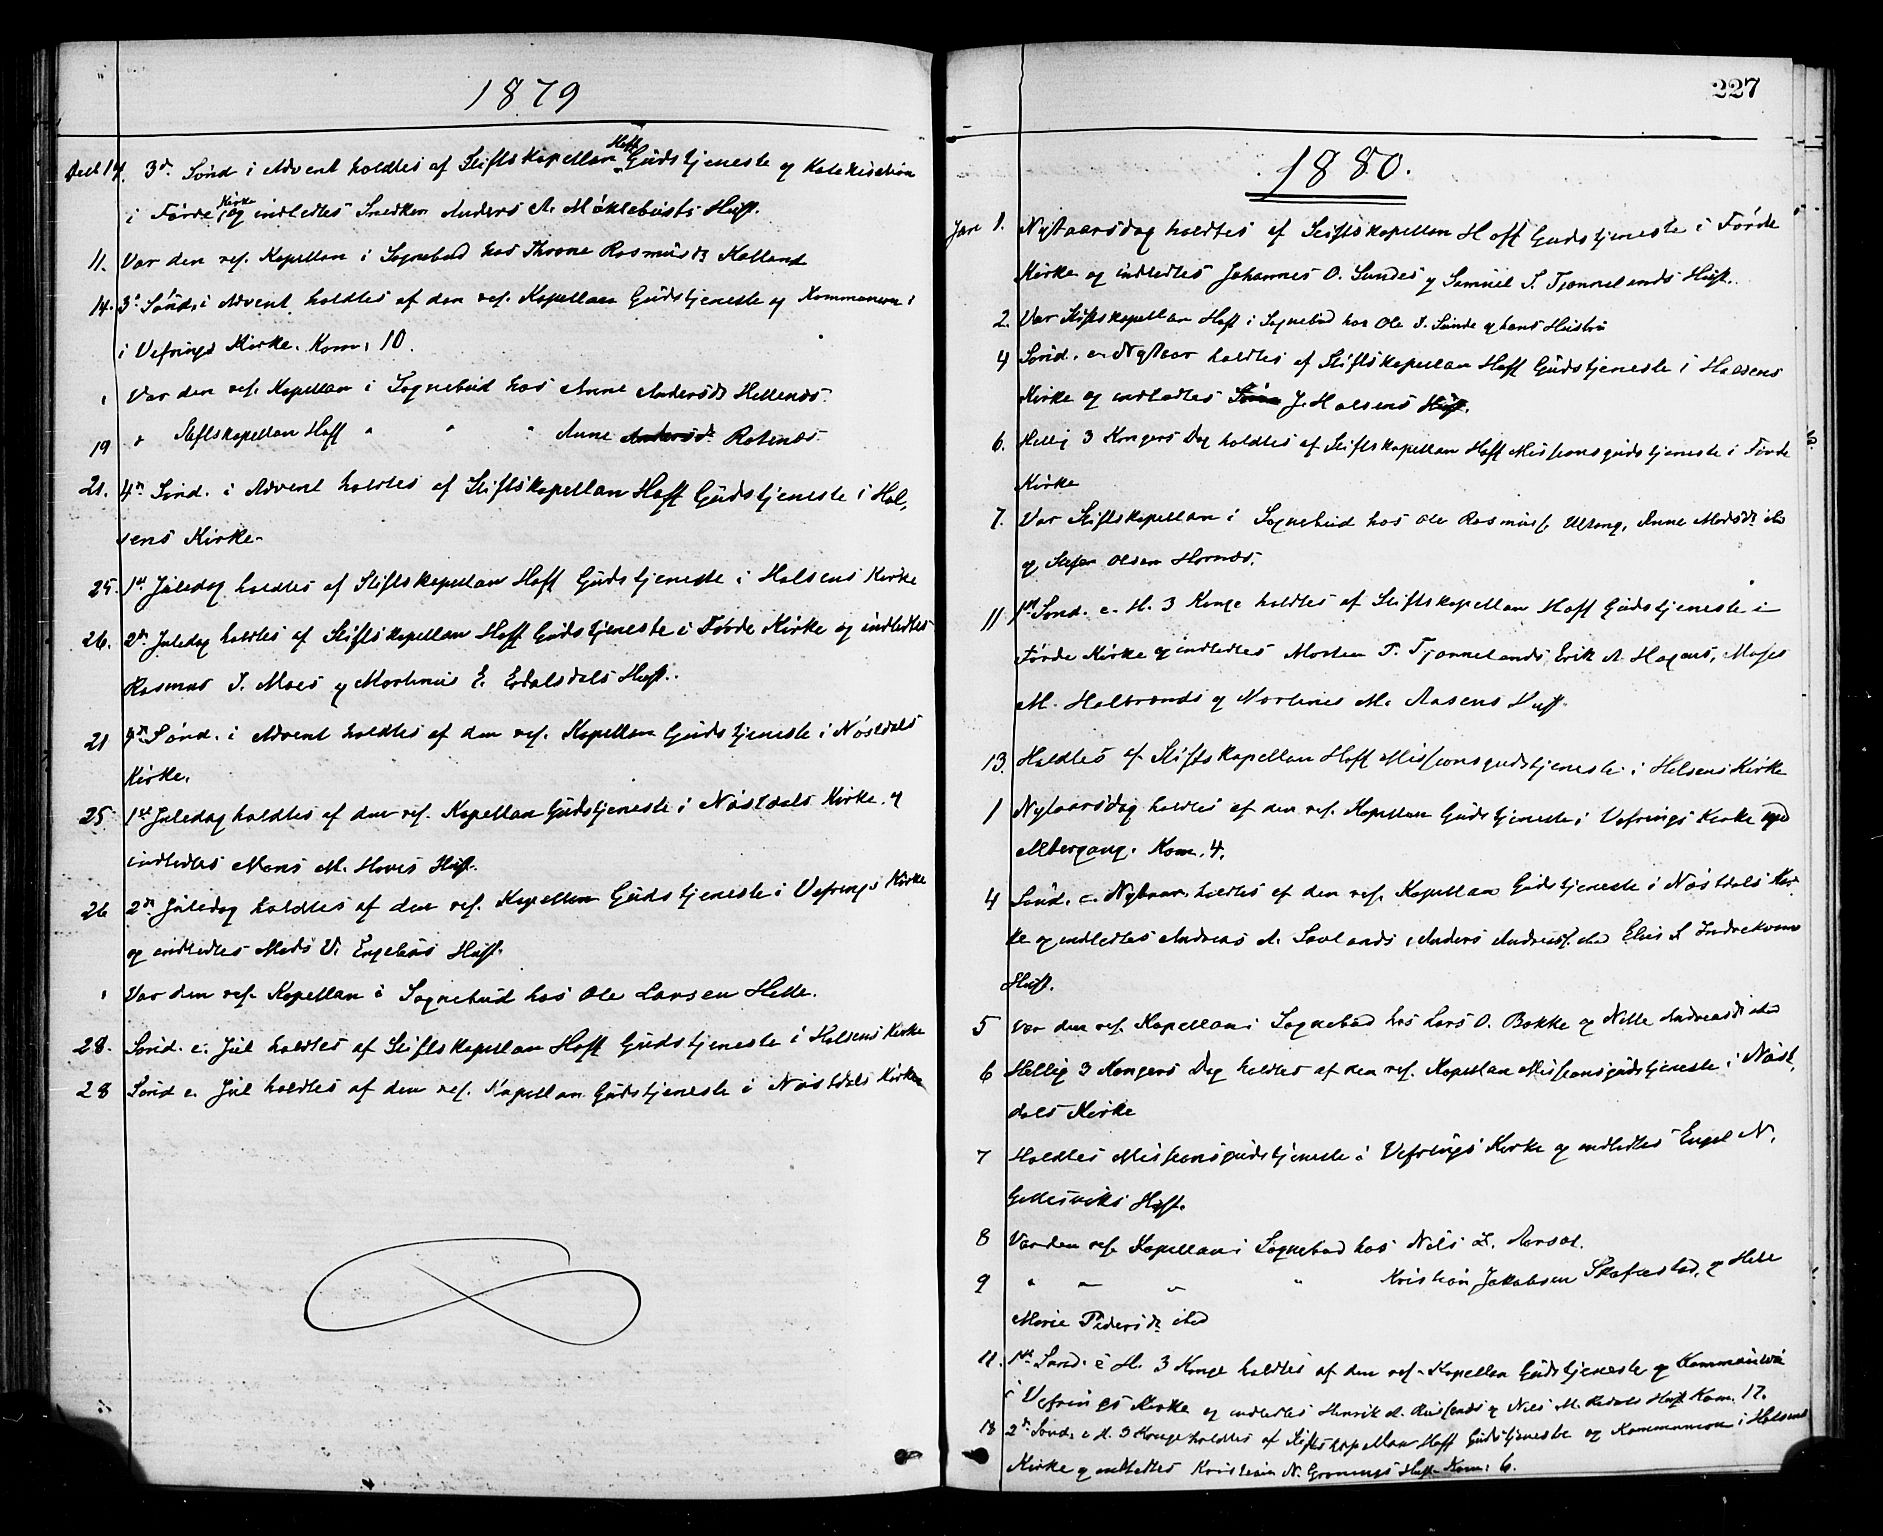 1879
Decb 14. 3d. Sönd i Advent holdtes af Stiftskapellan Hoff Gudstjeneste og Katekisation
i Förde Kirke og indledtes Snedker Anders A. Möklebusts Hust.
11. Var den res. Kapellan i Sognebud hos Throne Rasmusd. Kalland
14. 3d Sönd. i Advent holdtes af den res. Kapellan Gudstjeneste og Kommunion i
i Vefrings Kirke. Kom. 10.
" Var den res. Kapellan i Sognebud hos Anne Andersdr Hellenes.
19 " Stiftskapellan Hoff " " " Anne Andersdr. Rotenes.
21. 4de Sönd. i Advent holdtes af Stiftskapellan Hoff Gudstjeneste i Hol,
sens Kirke.
25. 1st Juledag holdtes af Stiftskapellan Hoff Gudstjeneste i Holsens Kirke
26. 2den Juledag holdtes af Stiftskapellan Hoff Gudstjeneste i Förde Kirke og indledtes
Rasmus J. Moes og Mortinus E. Erdalsdals Hust.
21 4de Sönd. i Advent holdtes af den res. Kapellan Gudstjeneste i Nöstdals
Kirke.
25 1st Juledag holdtes af den res. Kapellan Gudstjeneste i Nöstdals Kirke. og
indledtes Mons M. Hoves Hust.
26 2den Juledag holdtes af den res. Kapellan Gudstjeneste i Vefrings Kirke
og indledtes Mads V. Engebös Hust.
" Var den res. Kapellan i Sognebud hos Ole Larsen Helle.
28. Sönd. e. Jul holdtes af Stiftskapellan Hoff Gudstjeneste i Holsens Kirke
28 Sönd e. Jul holdtes af den res. Kapellan Gudstjeneste i Nöstdals Kirke
227
1880.
Jan 1. Nytaarsdag holdtes af Stiftskapellan Hoff Gudstjeneste i Förde
Kirke og indledtes Johannes O. Sundes og Samuel S. Tjönnelands Hust.
2. Var Stiftskapellan Hoff i Sognebud hos Ole J. Sunde og hans Hustru
4 Sönd. e. Nytaar holdtes af Stiftskapellan Hoff Gudstjeneste i Holsens
Kirke og indledtes J. Holsens Hust.
6. Hellig 3 Kongers Dag holdtes af Stiftskapellan Hoff Missionsgudstjeneste i Förde
Kirke
7. Var Stiftskapellan i Sognebud hos Ole Rasmuss. Ultang, Anne Madsdr. ibd
og Olsen Hornes.
11 1st Sönd. e. H. 3 Konge holdtes af Stiftskapellan Hoff Gudstjeneste i
Förde Kirke og indledtes Morten P. Tjönnelands, Erik A. Hagens, Moses
M. Halbrends og Martinus M. Aasens Hust.
13. Holdtes af Stiftskapellan Hoff Missionsgudstjeneste i Holsens Kirke
1 Nytaarsdag holdtes af den res. Kapellan Gudstjeneste i Vefrings Kirke med
Altergang. Kom. 4.
4 Sönd. e. Nytaar holdtes af den res. Kapellan Gudstjeneste i Nöstdals Kir
ke og indledtes Andreas A. Savlands, Anders Andreass. ibd Elias S. Indrekvams
Hust.
5 Var den res. Kapellan i Sognebud hos Lars O. Bakke og Nille Andreasdr ibd
6 Hellig 3 Kongers Dag holdtes af den res. Kapellan Missionsgudstjeneste i Nöst,
dals Kirke
7 Holdtes Missionsgudstjeneste i Vefrings Kirke og indledtes Engel N.
Gjellesviks Hust.
8 Var den res. Kapellan i Sognebud hos Nils L. Aarsæt.
9 " " " " Kristian Jakobsen Skafrestad, og Hele
Marie Pedersdr. ibd
11. 1st Sönd. e H. 3 Konge holdtes af den res. Kapellan Gudstjeneste og Kommunion
i Vefrings Kirke og indledtes Henrik A. og Nils M. Redals Hust Kom. 17.
18 2den Sönd. e. H. 3 Konge holdtes af Stiftskapellan Hoff Gudstjeneste og Kommunion i Holsens
Kirke og indledtes Kristian N. Grönnings Hust. Kom. 6.